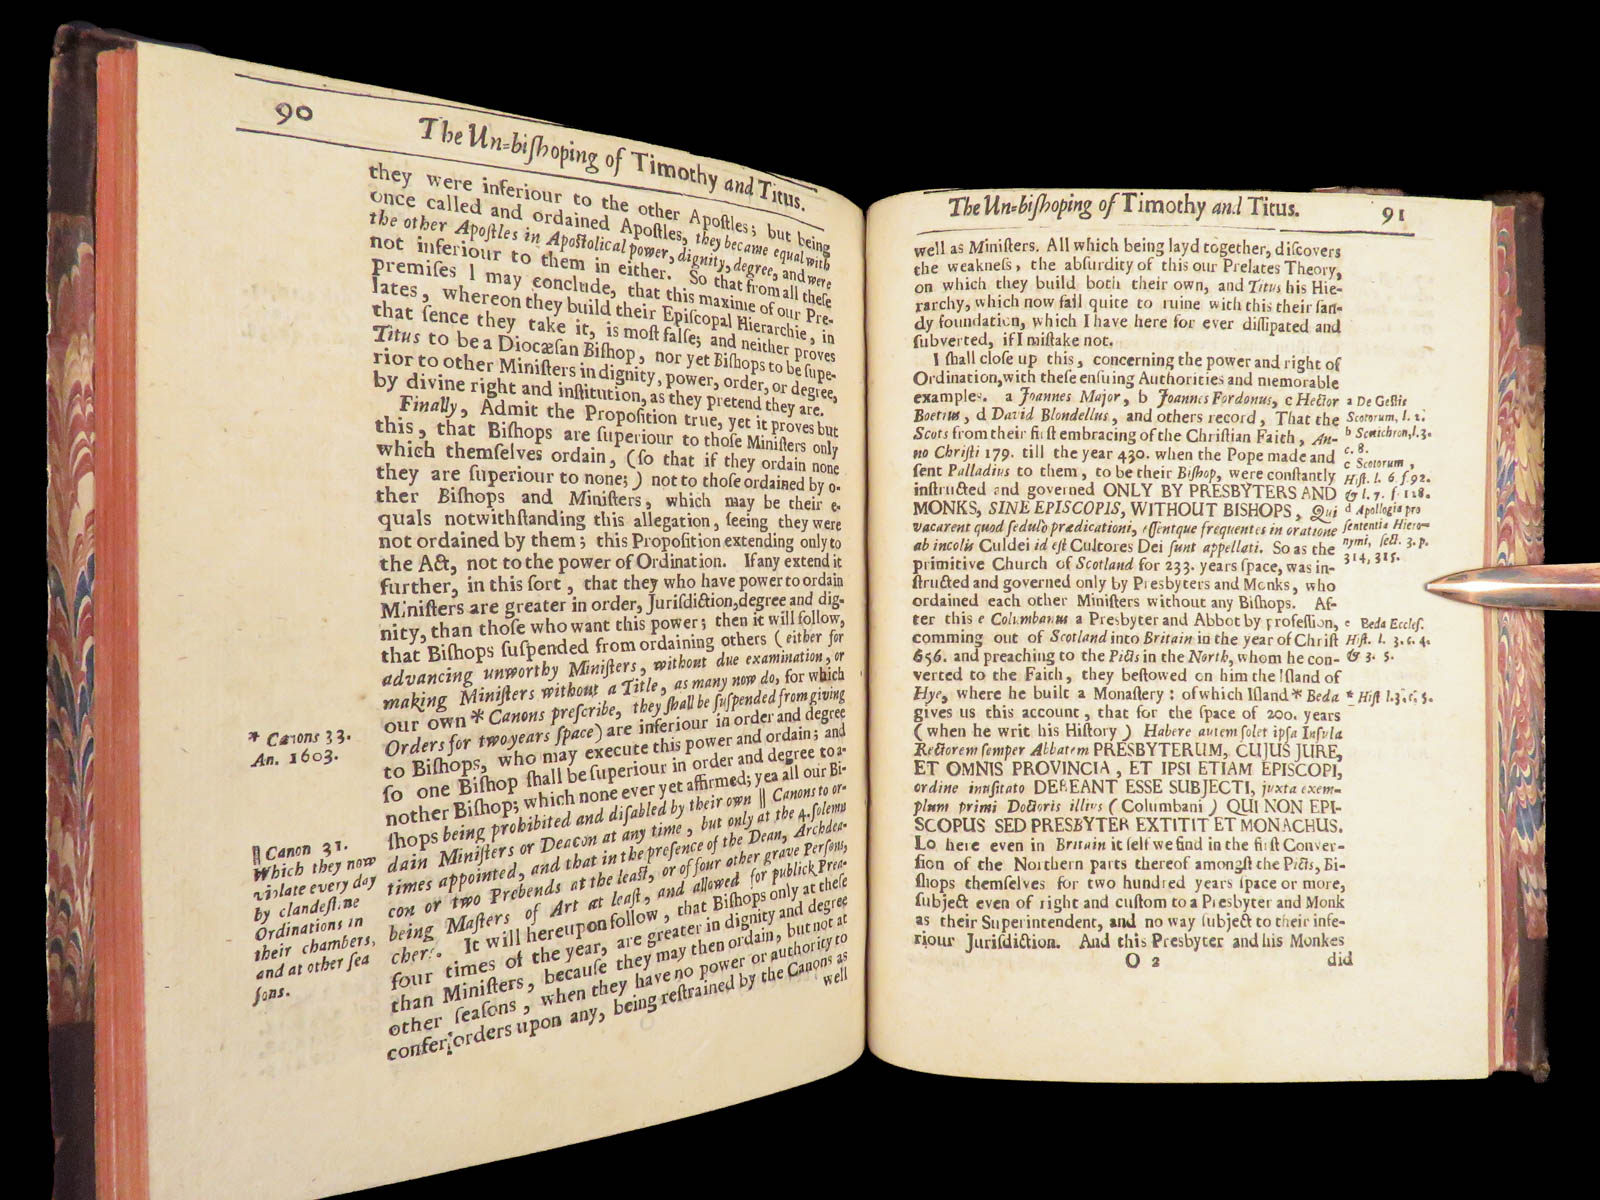 90
The Un=biſhoping of Timothy and Titus.
they were inferiour to the other Apoſtles; but being
once called and ordained Apoſtles, they became equal with
the other Apoſtles in Apoſtolical power, dignity, degree, and were
not inferiour to them in either. So that from all theſe
premiſes I may conclude, that this maxime of our Pre-
lates, whereon they build their Epiſcopal Hierarchie, in
that ſence they take it, is moſt falſe; and neither proves
Titus to be a Diocæſan Biſhop, nor yet Biſhops to be ſupe-
rior to other Miniſters in dignity, power, order, or degree,
by divine right and inſtitution, as they pretend they are.
Finally, Admit the Propoſition true, yet it proves but
this, that Biſhops are ſuperiour to thoſe Miniſters only
which themſelves ordain, (ſo that if they ordain none
they are ſuperiour to none;) not to thoſe ordained by o-
ther Biſhops and Miniſters, which may be their e-
quals notwithſtanding this allegation, ſeeing they were
not ordained by them; this Propoſition extending only to
the Act, not to the power of Ordination. If any extend it
further, in this ſort, that they who have power to ordain
Miniſters are greater in order, Jurisdiction, degree and dig-
nity, than thoſe who want this power; then it will follow,
that Biſhops ſuſpended from ordaining others (either for
advancing unworthy Miniſters, without due examination, or
making Miniſters without a Title, as many now do, for which
our own * Canons preſcribe, they ſhall be ſuſpended from giving
Orders for two years ſpace) are inferiour in order and degree
to Biſhops, who may execute this power and ordain; and
ſo one Biſhop ſhall be ſuperiour in order and degree to a-
nother Biſhop; which none ever yet affirmed; yea all our Bi-
ſhops being prohibited and diſabled by their own || Canons to or-
dain Miniſters or Deacon at any time, but only at the 4. ſolemn
times appointed, and that in the preſence of the Dean, Archdea-
con or two Prebends at the leaſt, or of four other grave Perſons,
being Maſters of Art at leaſt, and allowed for publick Prea-
cherſ. It will hereupon follow, that Biſhops only at theſe
four times of the year, are greater in dignity and degree
than Miniſters, becauſe they may then ordain, but not at
other ſeaſons, when they have no power or authority to
confer orders upon any, being reſtrained by the Canons as
well
* Canons 33.
An. 1603.
|| Canon 31.
Which they now
violate every day
by clandeſtine
Ordinations in
their chambers,
and at other ſea
ſons.
The Un=biſhoping of Timothy and Titus.
91
well as Miniſters. All which being layd together, diſcovers
the weakneſs, the abſurdity of this our Prelates Theory,
on which they build both their own, and Titus his Hie-
rarchy, which now fall quite to ruine with this their ſan-
dy foundation, which I have here for ever diſſipated and
ſubverted, if I miſtake not.
I ſhall cloſe up this, concerning the power and right of
Ordination, with theſe enſuing Authorities and memorable
examples. a Joannes Major, b Joannes Fordonus, c Hector
Boetius, d David Blondellus, and others record, That the
Scots from their firſt embracing of the Chriſtian Faith, An-
no Chriſti 179. till the year 430. when the Pope made and
ſent Palladius to them, to be their Biſhop, were conſtantly
inſtructed and governed ONLY BY PRESBYTERS AND
MONKS, SINE EPISCOPIS, WITHOUT BISHOPS, Qui
vacarent quod ſedulo prædicationi, eſſentque frequentes in oratione
ab incolis Culdei id eſt Cultores Dei ſunt appellati. So as the
primitive Church of Scotland for 233. years ſpace, was in-
ſtructed and governed only by Presbyters and Monks, who
ordained each other Miniſters without any Biſhops. Af-
ter this e Columbanus a Presbyter and Abbot by profeſſion,
comming out of Scotland into Britain in the year of Chriſt
656. and preaching to the Picts in the North, whom he con-
verted to the Faith, they beſtowed on him the Iſland of
Hye, where he built a Monaſtery: of which Iſland * Beda
gives us this account, that for the ſpace of 200. years
(when he writ his Hiſtory) Habere autem ſolet ipſa Inſula
Rectorem ſemper Abbatem PRESBYTERUM, CUJUS JURE,
ET OMNIS PROVINCIA, ET IPSI ETIAM EPISCOPI,
ordine inuſitato DEBEANT ESSE SUBJECTI, juxta exem-
plum primi Doctoris illius (Columbani) QUI NON EPI-
SCOPUS SED PRESBYTER EXTITIT ET MONACHUS.
Lo here even in Britain it ſelf we find in the firſt Conver-
ſion of the Northern parts thereof amongſt the Picts, Bi-
ſhops themſelves for two hundred years ſpace or more,
ſubject even of right and cuſtom to a Presbyter and Monk
as their Superintendent, and no way ſubject to their infe-
riour Jurisdiction. And this Presbyter and his Monkes
O 2
did
a De Geſtis
Scotorum, l. 2.
b Scotichron, l. 3.
c. 8.
c Scotorum,
Hiſt. l. 6. f. 92.
& l. 7. f. 128.
d Apologia pro
ſententia Hiero-
nymi, ſect. 3. p.
314, 315.
e Beda Eccleſ.
Hiſt. l. 3. c. 4.
& 3. 5.
* Hiſt l. 3. c. 5.